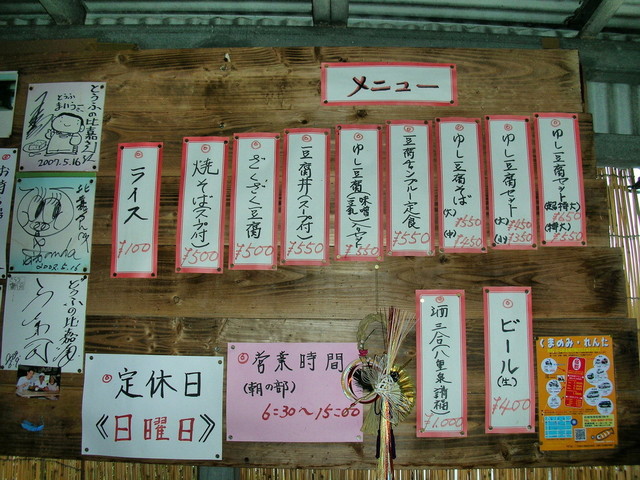 メニュー
ゆし豆腐セット
(超特大)
¥650
(特大)
¥550
ゆし豆腐セット
(大)
¥450
(小)
¥350
ゆし豆腐そば
(大)
¥550
(中)
¥450
豆腐チャンプルー定食
¥550
ゆし豆腐
¥550
豆腐丼(スープ付)
¥550
ざくざく豆腐
¥500
焼そばスープ付
¥500
ライス
¥100
ビール
(生)
¥400
酒
三合
八重泉
請福
¥1,000
営業時間
(朝の部)
6:30〜15:00
定休日
《日曜日》
どうふの比嘉さん
どうふ
まいうー
2007.5.16
2007.5.16
どうふの比嘉
くまのみ・れんた